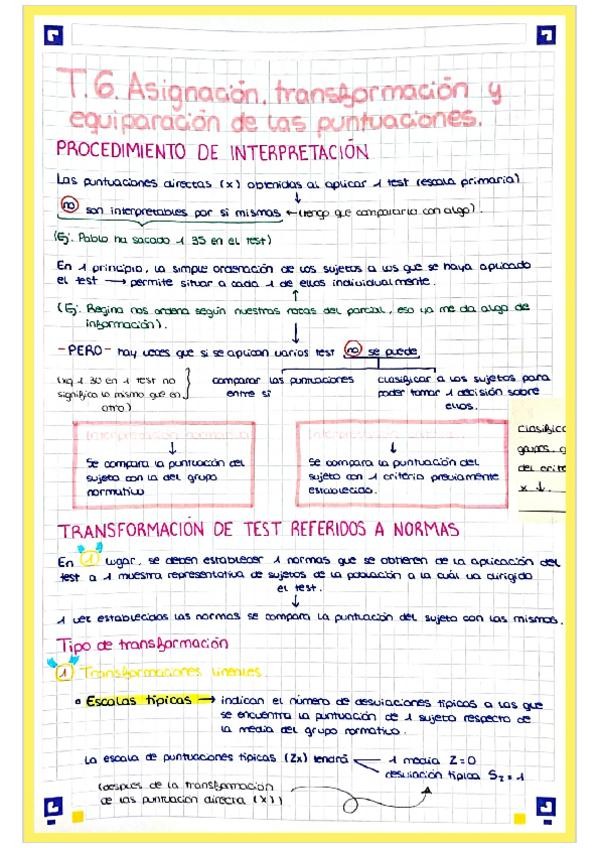 T.6. Asignación, transformación y
equiparación de las puntuaciones.
PROCEDIMIENTO DE INTERPRETACIÓN
Las puntuaciones directas (x) obtenidas al aplicar 1 test (escala primaria)
↓
no son interpretables por si mismas ← (tengo que compararla con algo).
(Ej: Pablo ha sacado 1 35 en el test)
En 1 principio, la simple ordenación de los sujetos a los que se haya aplicado
el test → permite situar a cada 1 de ellos individualmente.
↑
(Ej: Regina nos ordena según nuestras notas del parcial, eso ya me da algo de
información).
↓
-PERO- hay veces que si se aplican varios test no se puede
(xq 1 30 en 1 test no
significa lo mismo que en
otro)
comparar las puntuaciones
entre si
clasificar a los sujetos para
poder tomar 1 decisión sobre
ellos.
Interpretación normativa
↓
Se compara la puntuación del
sujeto con la del grupo
normativo
↓
Se compara la puntuación del
sujeto con 1 criterio previamente
establecido.
clasific
grupos, 
del crite
x ↓.
TRANSFORMACIÓN DE TEST REFERIDOS A NORMAS
En 1 lugar, se deben establecer 1 normas que se obtienen de la aplicación del
test a 1 muestra representativa de sujetos de la población a la cuál va dirigido
el test.
↓
1 vez establecidas las normas se compara la puntuación del sujeto con las mismas.
Tipo de transformación
1 Transformaciones lineales.
Escalas típicas → indican el número de desviaciones típicas a las que
se encuentra la puntuación de 1 sujeto respecto de
la media del grupo normativo.
La escala de puntuaciones típicas (Zx) tendrá
1 media Z=0
desviación típica Sz=1
(después de la transformación
de las puntuación directa (X))